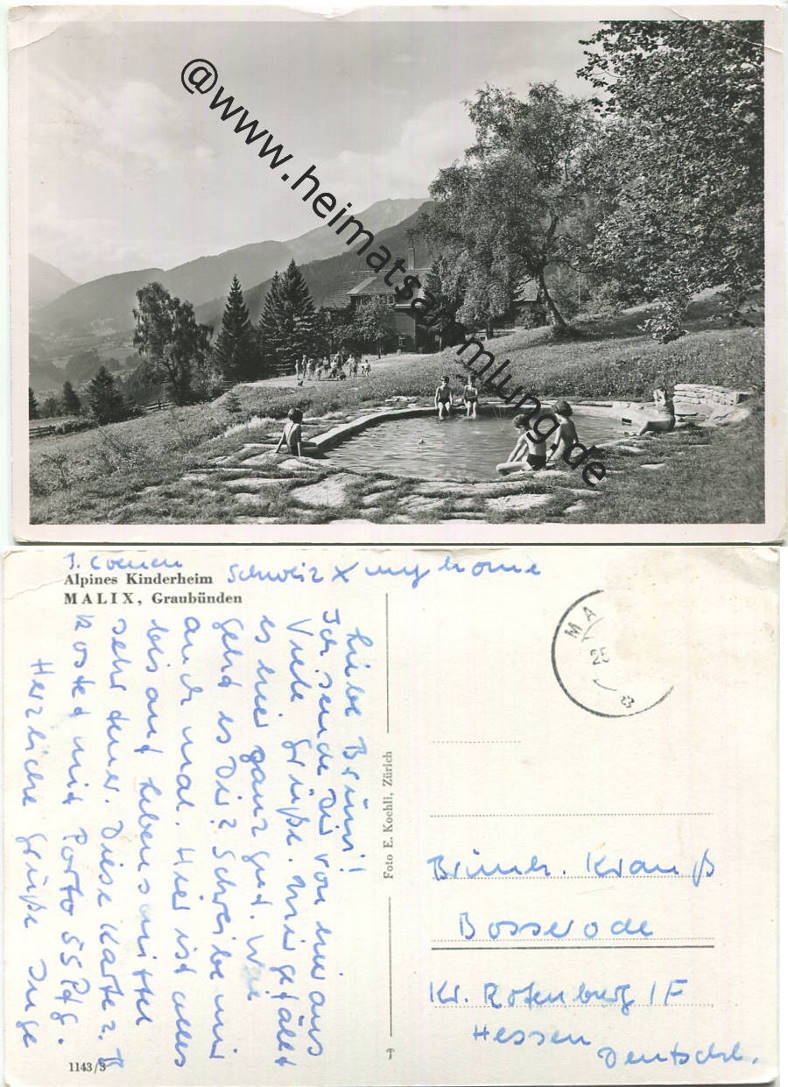 @www.heimatsammlung.de
J. Coenen
Schweiz X my home
Alpines Kinderheim
MALIX, Graubünden
Liebe Brüni!
Ich sende Dir von hier aus
Viele Grüße. Mir gefällt
es hier ganz gut. Wie
geht es Dir? Schreibe mir
auch mal. Hier ist alles
bis auf Lebensmittel
sehr teuer. Diese Karte z. B
kostet mit Porto 55 Pfg.
Herzliche Grüße Inge
Foto E. Kochli, Zürich
1143/3
MA
25
Brünh. Krauß
Bosserode
Kr. Rotenburg / F
Hessen
Deutschl.